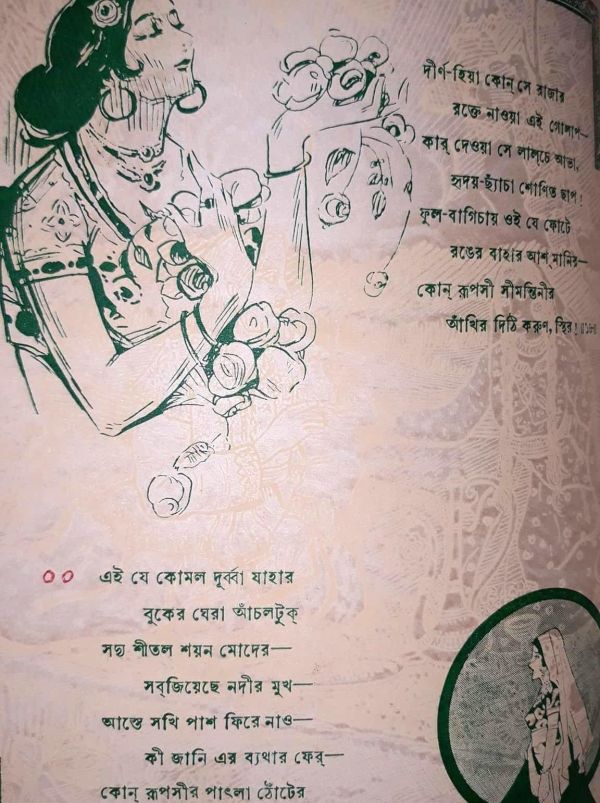 দীর্ণ-হিয়া কোন্ সে রাজার
রক্তে নাওয়া এই গোলাপ—
কার্ দেওয়া সে লাল্‌চে আভা,
হৃদয়-ছ্যাঁচা শোণিত ছাপ!
ফুল-বাগিচায় ওই যে ফোটে
রঙের বাহার আশ্‌মানির—
কোন্ রূপসী সীমন্তিনীর
আঁখির দিঠি করুণ, স্থির! ॥১৮॥
০০ এই যে কোমল দূর্ব্বা যাহার
বুকের ঘেরা আঁচলটুক্
সদ্য শীতল শয়ন মোদের—
সব্‌জিয়েছে নদীর মুখ—
আস্তে সখি পাশ ফিরে নাও—
কী জানি এর ব্যথার ফের্—
কোন্ রূপসীর পাৎলা ঠোঁটের